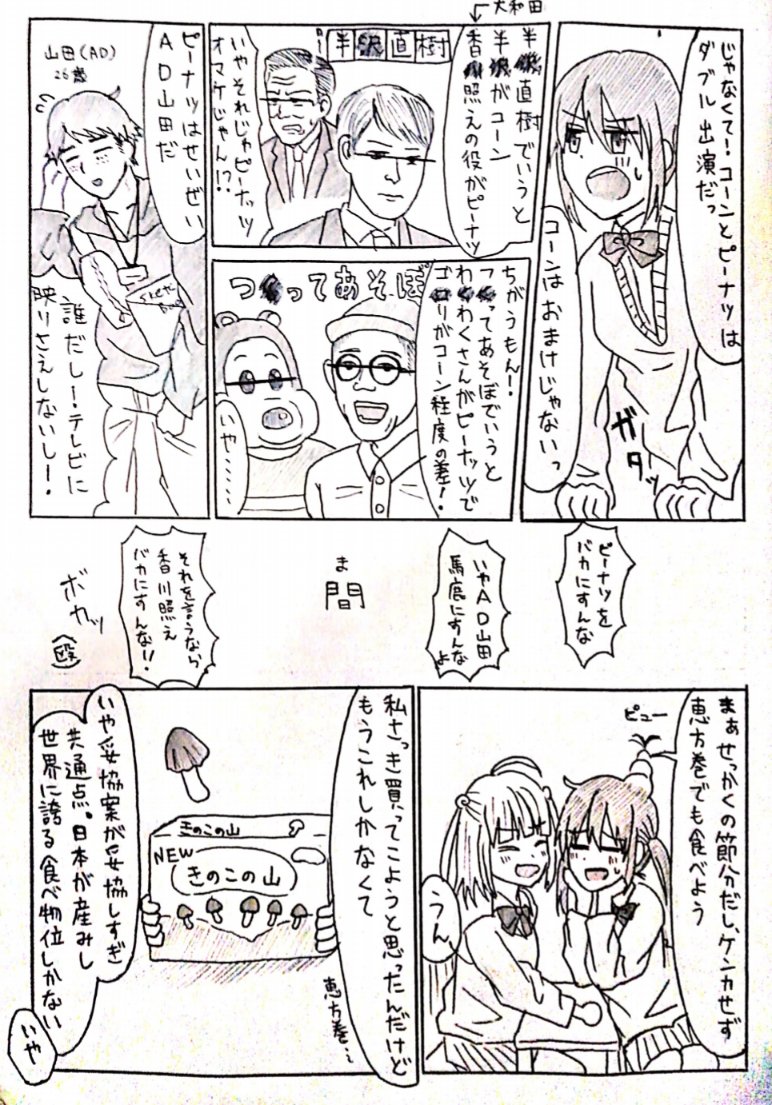 じゃなくて!コーンとピーナツは
ダブル出演だっ
コーンはおまけじゃないっ
ガタッ
大和田
半沢直樹でいうと
半沢がコーン
香川照えの役がピーナツ
半沢直樹
いやそれじゃピーナッツ
オマケじゃん!?
ちがうもん!
つくってあそぼでいうと
わくわくさんがピーナッツで
ゴロリがコーン程度の差!
つくってあそぼ
いや……
ピーナツはせいぜい
AD山田だ
山田(AD)
26歳
誰だし!テレビに
映りさえしないし!
ピーナツを
バカにすんな
いやAD山田
馬鹿にすんなよ
ま
間
それを言うなら
香川照え
バカにすんな!!
ボカッ
(殴)
まぁせっかくの節分だし、ケンカせず
恵方巻でも食べよう
ピュー
うん
私さっき買ってこようと思ったんだけど
もうこれしかなくて
恵方巻…
きのこの山
NEW
きのこの山
いや妥協案が妥協しすぎ
共通点。日本が産みし
世界に誇る食べ物位しかない
いや